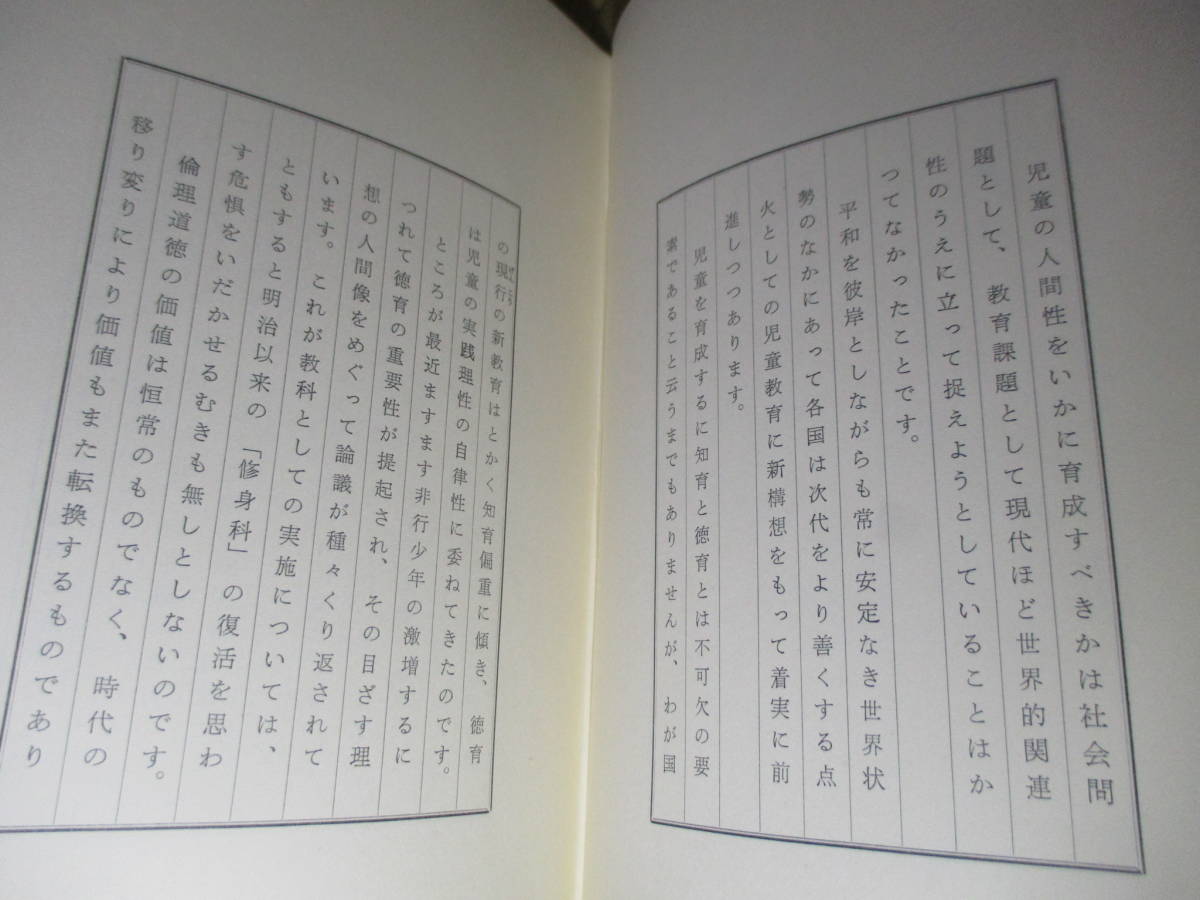 児童の人間性をいかに育成すべきかは社会問
題として、教育課題として現代ほど世界的関連
性のうえに立って捉えようとしていることはか
つてなかったことです。
平和を彼岸としながらも常に安定なき世界状
勢のなかにあって各国は次代をより善くする点
火としての児童教育に新構想をもって着実に前
進しつつあります。
児童を育成するに知育と徳育とは不可欠の要
素であること云うまでもありませんが、わが国
の現行の新教育はとかく知育偏重に傾き、徳育
は児童の実践理性の自律性に委ねてきたのです。
ところが最近ますます非行少年の激増するに
つれて徳育の重要性が提起され、その目ざす理
想の人間像をめぐって論議が種々くり返されて
います。これが教科としての実施については、
ともすると明治以来の「修身科」の復活を思わ
す危惧をいだかせるむきも無しとしないのです。
倫理道徳の価値は恒常のものでなく、時代の
移り変りにより価値もまた転換するものであり